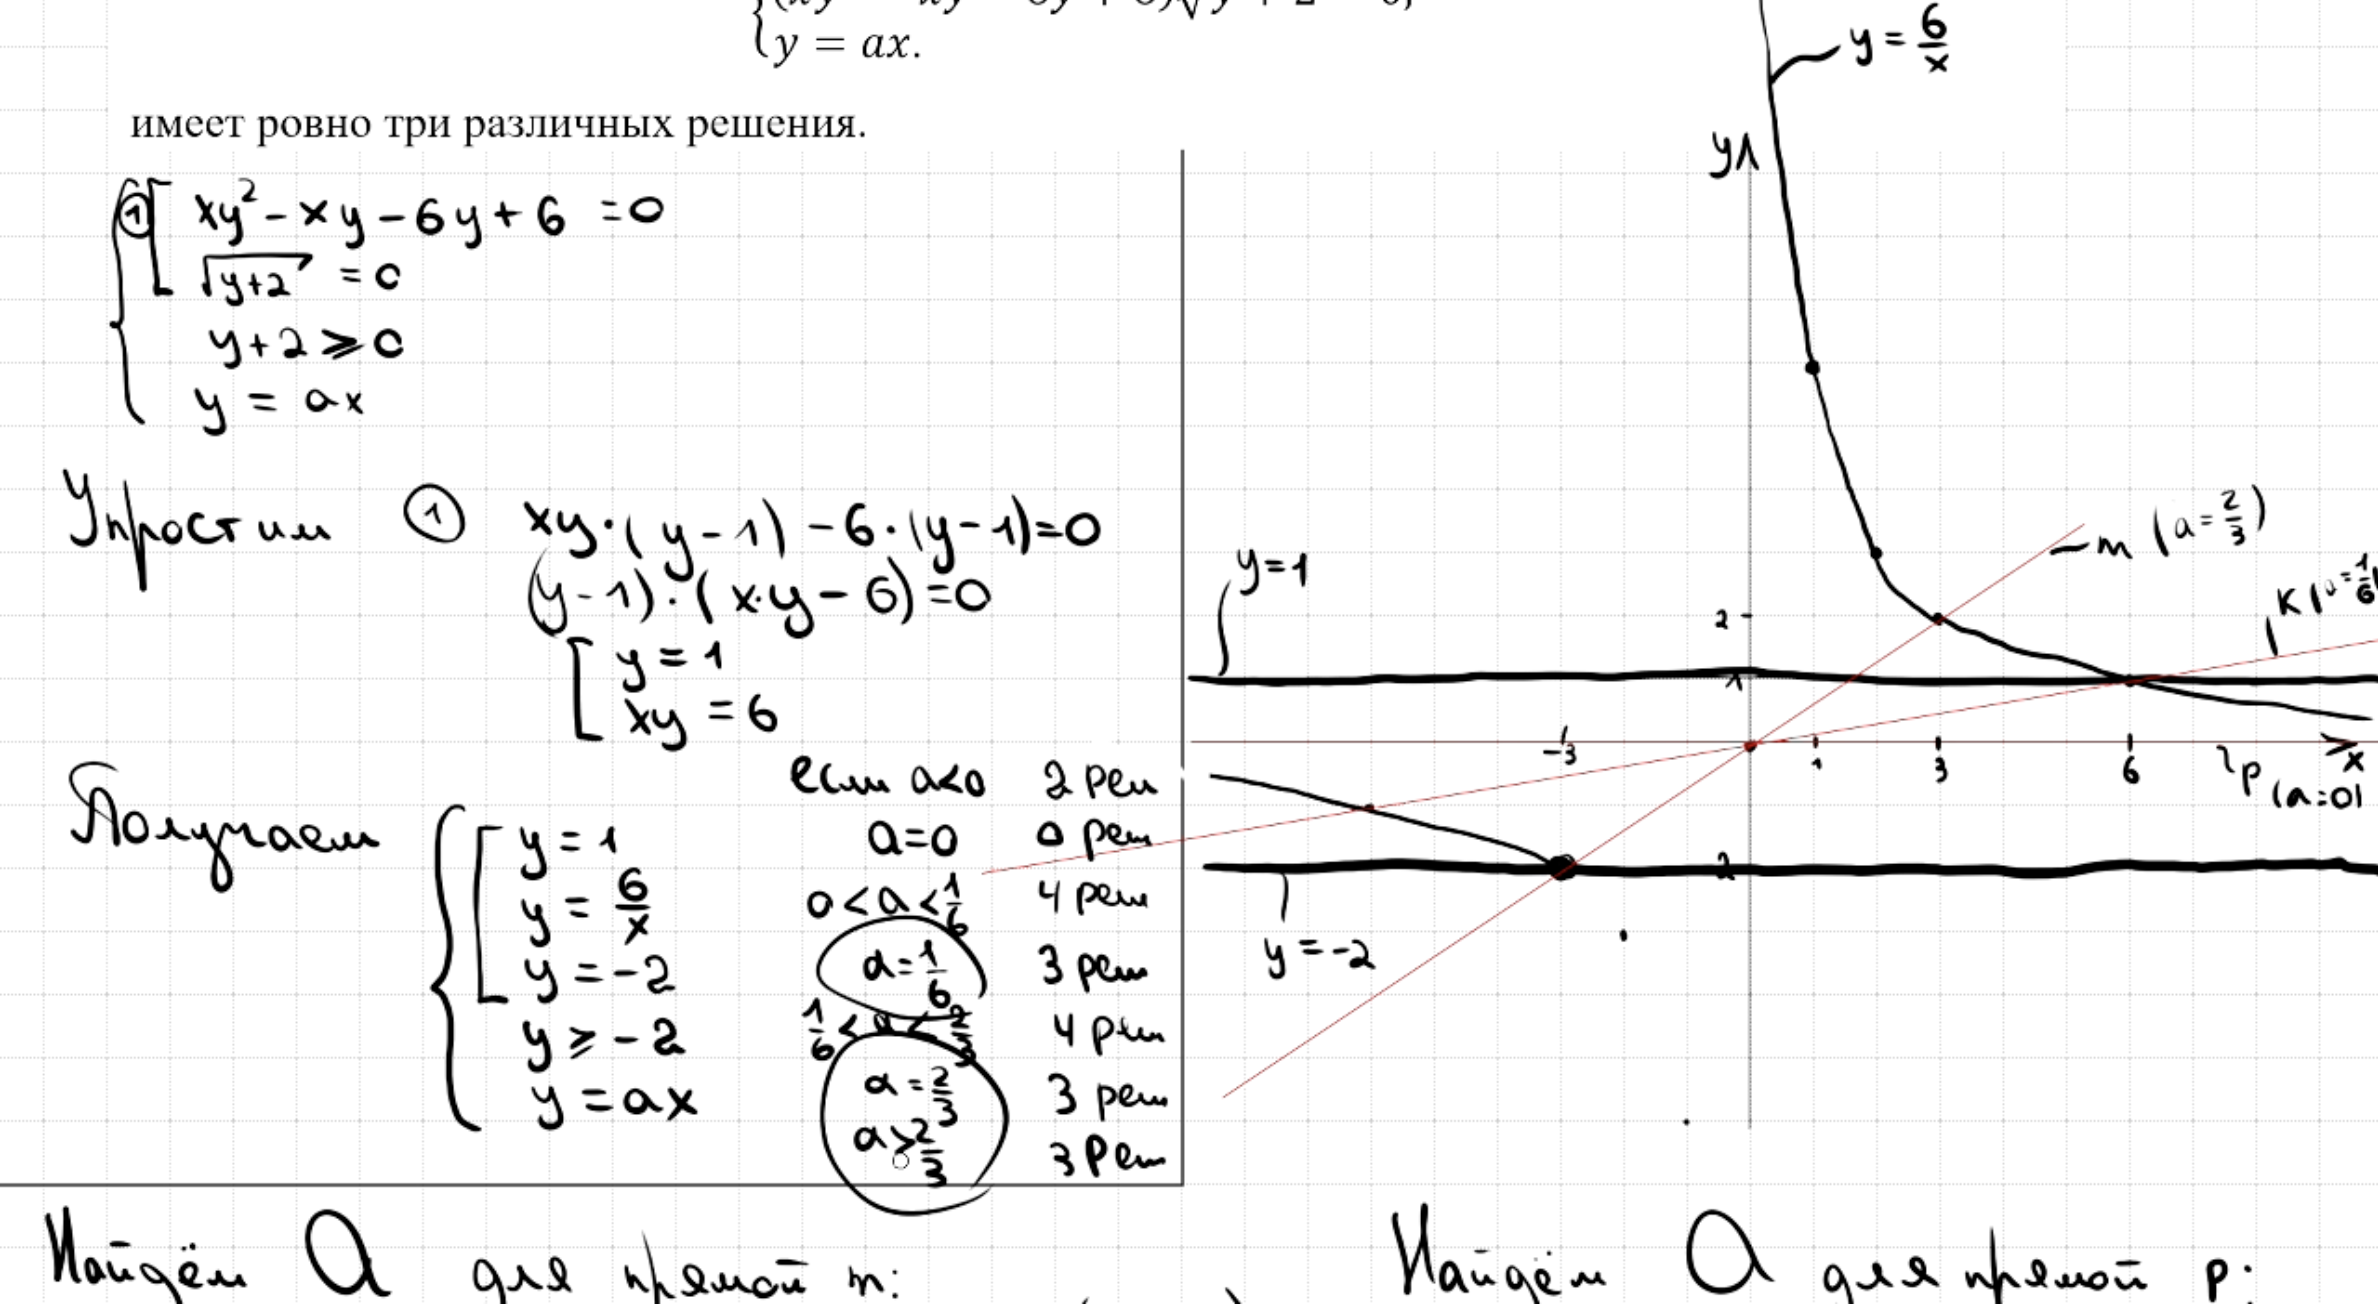 y = ax.
имеет ровно три различных решения.
① xy² - xy - 6y + 6 = 0
√(y+2) = 0
y + 2 ⩾ 0
y = ax
Упростим ① xy·(y-1) - 6·(y-1)=0
(y-1)·(x·y-6)=0
y = 1
xy = 6
Получаем
y = 1
y = 6/x
y = -2
y ⩾ -2
y = ax
если a<0 2 реш
a=0 0 реш
0<a<1/6 4 реш
a=1/6 3 реш
1/6<a<2/3 4 реш
a=2/3 3 реш
a>2/3 3 реш
y = 6/x
y
m (a=2/3)
y=1
K (a=1/6)
2
1
-3 1 3 6 x
p (a=0)
2
y=-2
Найдём a для прямой m:
Найдём a для прямой p: